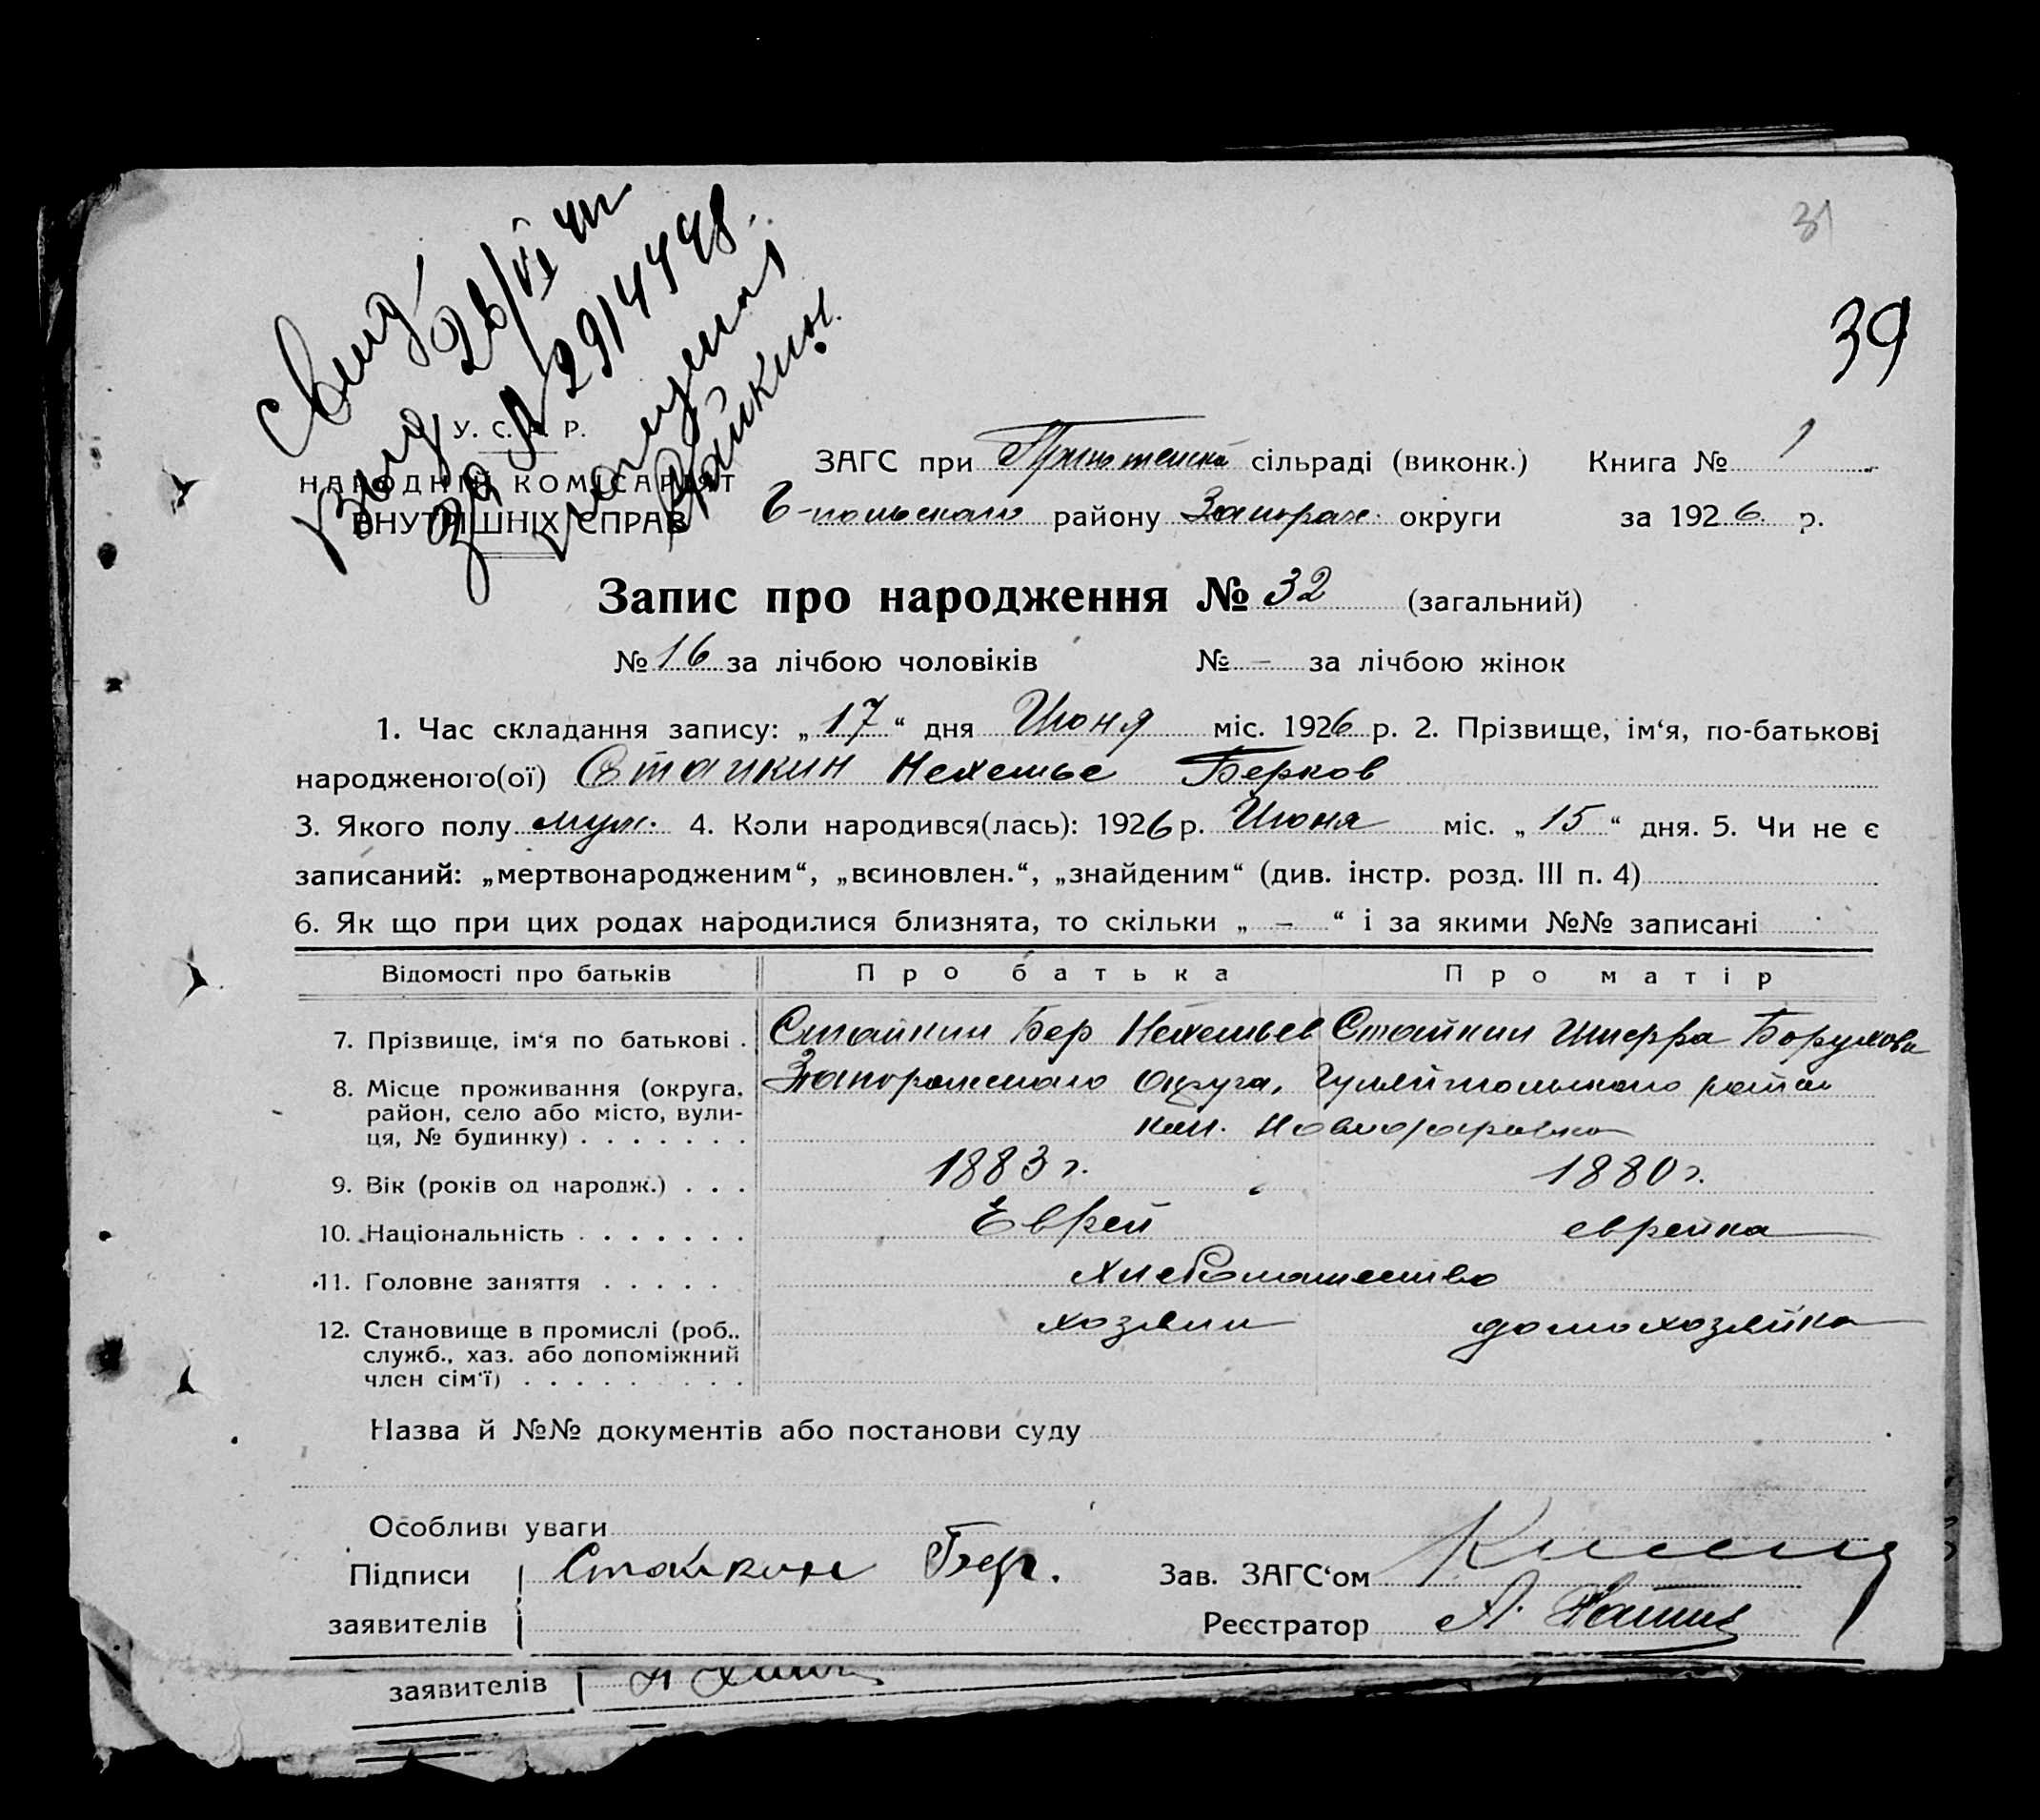 31
39
Свид
Выд 26/VI 41г
За № 2914448.
У. С. Р. Р.
НАРОДНІЙ КОМІСАРІЯТ
ВНУТРІШНІХ СПРАВ
ЗАГС при сільраді (виконк.) Книга № 1
Г-польского району Запорож. округи за 1926 р.
Запис про народження № 32 (загальний)
№ 16 за лічбою чоловіків № – за лічбою жінок
1. Час складання запису: „17“ дня Июня міс. 1926 р. 2. Прізвище, ім‘я, по-батькові
народженого(ої) Стайкин Нехемье Берков
3. Якого полу муж. 4. Коли народився(лась): 1926 р. Июня міс. „15“ дня. 5. Чи не є
записаний: „мертвонародженим“, „всиновлен.“, „знайденим“ (див. інстр. розд. III п. 4)
6. Як що при цих родах народилися близнята, то скільки „ – “ і за якими №№ записані
Відомості про батьків Про батька Про матір
7. Прізвище, ім‘я по батькові . Стайкин Бер Нехемьев Стайкин Борухова
8. Місце проживання (округа, Запорожского Округа, Гуляйпольского район
район, село або місто, вули-
ця, № будинку) . . . . . . . кол.
9. Вік (років од народж.) . . . 1883 г. 1880 г.
10. Національність . . . . . . . Еврей еврейка
11. Головне заняття . . . . . хлебопашество
12. Становище в промислі (роб., хозяин домохозяйка
служб., хаз. або допоміжний
член сім‘ї) . . . . . . . . .
Назва й №№ документів або постанови суду
Особливі уваги
Підписи Стайкин Бер. Зав. ЗАГС‘ом
заявителів Реєстратор А.
заявителів